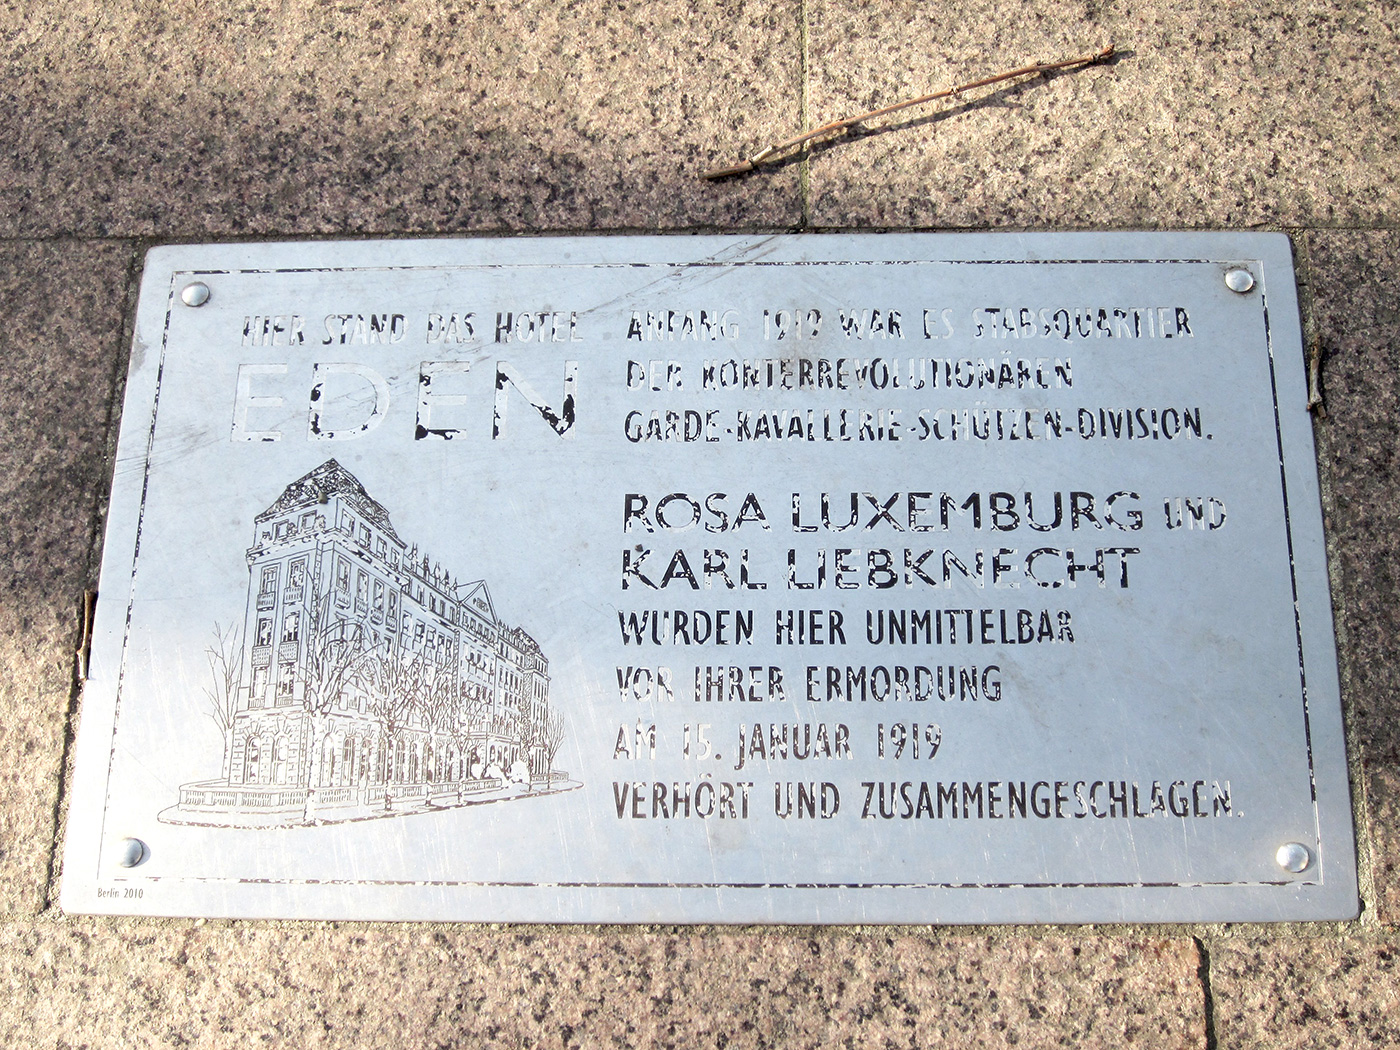 HIER STAND DAS HOTEL
EDEN
ANFANG 1919 WAR ES STABSQUARTIER
DER KONTERREVOLUTIONÄREN
GARDE-KAVALLERIE-SCHÜTZEN-DIVISION.
ROSA LUXEMBURG UND
KARL LIEBKNECHT
WURDEN HIER UNMITTELBAR
VOR IHRER ERMORDUNG
AM 15. JANUAR 1919
VERHÖRT UND ZUSAMMENGESCHLAGEN.
Berlin 2010